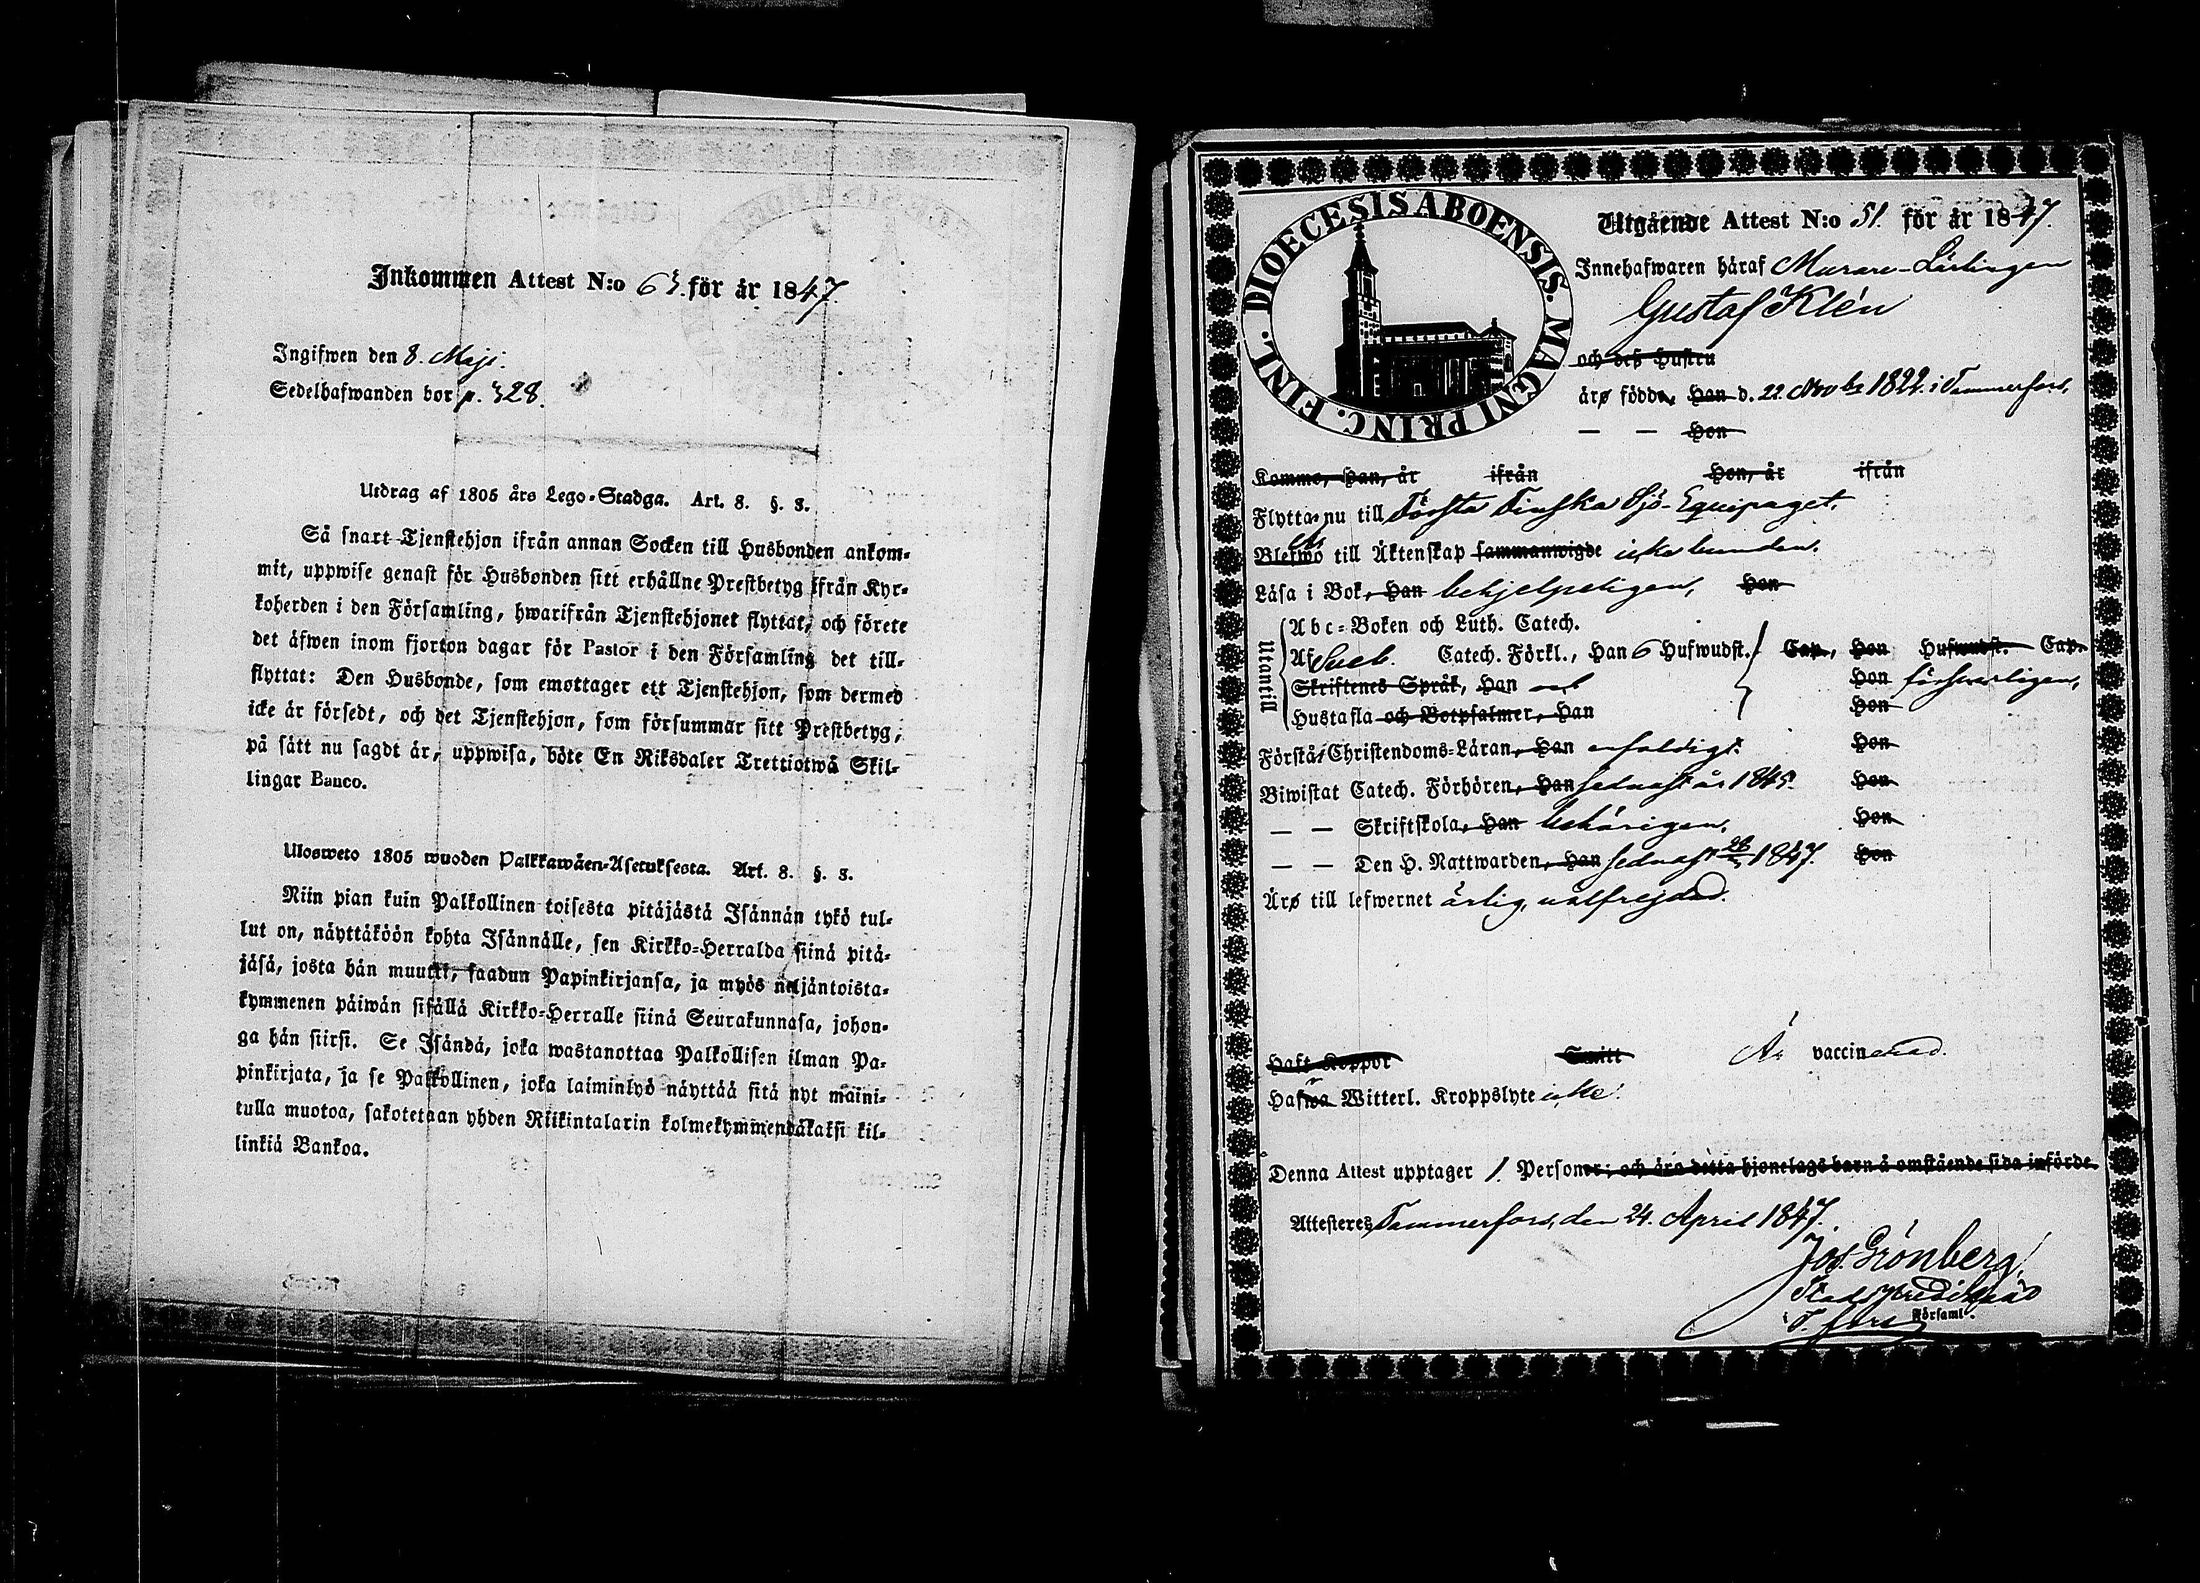 Inkommen Attest N:o 63. för år 1847.
Ingifwen den 8. Maji.
Sedelhafwanden bor p. 328.
Utdrag af 1805 års Lego-Stadga. Art. 8. §. 3.
Så snart Tjenstehjon ifrån annan Socken till Husbonden ankom-
mit, uppwise genast för Husbonden sitt erhållne Prestbetyg ifrån Kyr-
koherden i den Församling, hwarifrån Tjenstehjonet flyttat, och förete
det äfwen inom fjorton dagar för Pastor i den Församling det till-
flyttat: Den Husbonde, som emottager ett Tjenstehjon, som dermed
icke är försedt, och det Tjenstehjon, som försummar sitt Prestbetyg,
på sätt nu sagdt är, uppwisa, böte En Riksdaler Trettiotwå Skil-
lingar Banco.
Ulosweto 1805 wuoden Palkkawäen-Asetuksesta. Art. 8. §. 3.
Niin pian kuin Palkollinen toisesta pitäjästä Isännän tykö tul-
lut on, näyttäköön kohta Isännälle, sen Kirkko-Herralda siinä pitä-
jäsä, josta hän muutti, saadun Papinkirjansa, ja myös neljäntoista-
kymmenen päiwän sisällä Kirkko-Herralle siinä Seurakunnasa, johon-
ga hän siirsi. Se Isändä, joka wastanottaa Palkollisen ilman Pa-
pinkirjata, ja se Palkollinen, joka laiminlyö näyttää sitä nyt maini-
tulla muotoa, sakotetaan yhden Riikintalarin kolmekymmendäkaksi kil-
linkiä Bankoa.
DIOECESIS ABOENSIS. MAGNI PRINC. FINL.
Utgående Attest N:o 51. för år 1847.
Innehafwaren häraf Murare-Lärlingen
Gustaf Klén
och deß Hustru
äro födda, Han d. 22 Novbr 1822. i Tammerfors,
— — Hon
Kommo, Han, år ifrån Hon, år ifrån
Flytta nu till Första Finska Sjö-Equipaget.
Blefwo till Äktenskap sammanwigde icke bunden.
Läsa i Bok, Han behjelpeligen, Hon
Utantill
Abc-Boken och Luth. Catech.
Af Sveb. Catech. Förkl., Han 6 Hufwudst. Cap., Hon Hufwudst. Cap.
Skriftenes Språk, Han och Hon försvarligen,
Hustafla och Botpsalmer, Han Hon
Förstå Christendoms-Läran, Han enfaldigt. Hon
Biwistat Catech. Förhören, Han sednast år 1845. Hon
— — Skriftskola, Han behörigen, Hon
— — Den H. Nattwarden, Han sednast 1847. Hon
Äro till lefwernet ärlig, wälfrejdad.
Haft Koppor Smitt Är vaccinerad.
Hafwa Witterl. Kroppslyte icke.
Denna Attest upptager 1. Personer; och äro detta hjonelags barn å omstående sida införde.
Attesteres Tammerfors, den 24. April 1847.
Jos. Grönberg.
Stads predikand
i T. fors Församl.